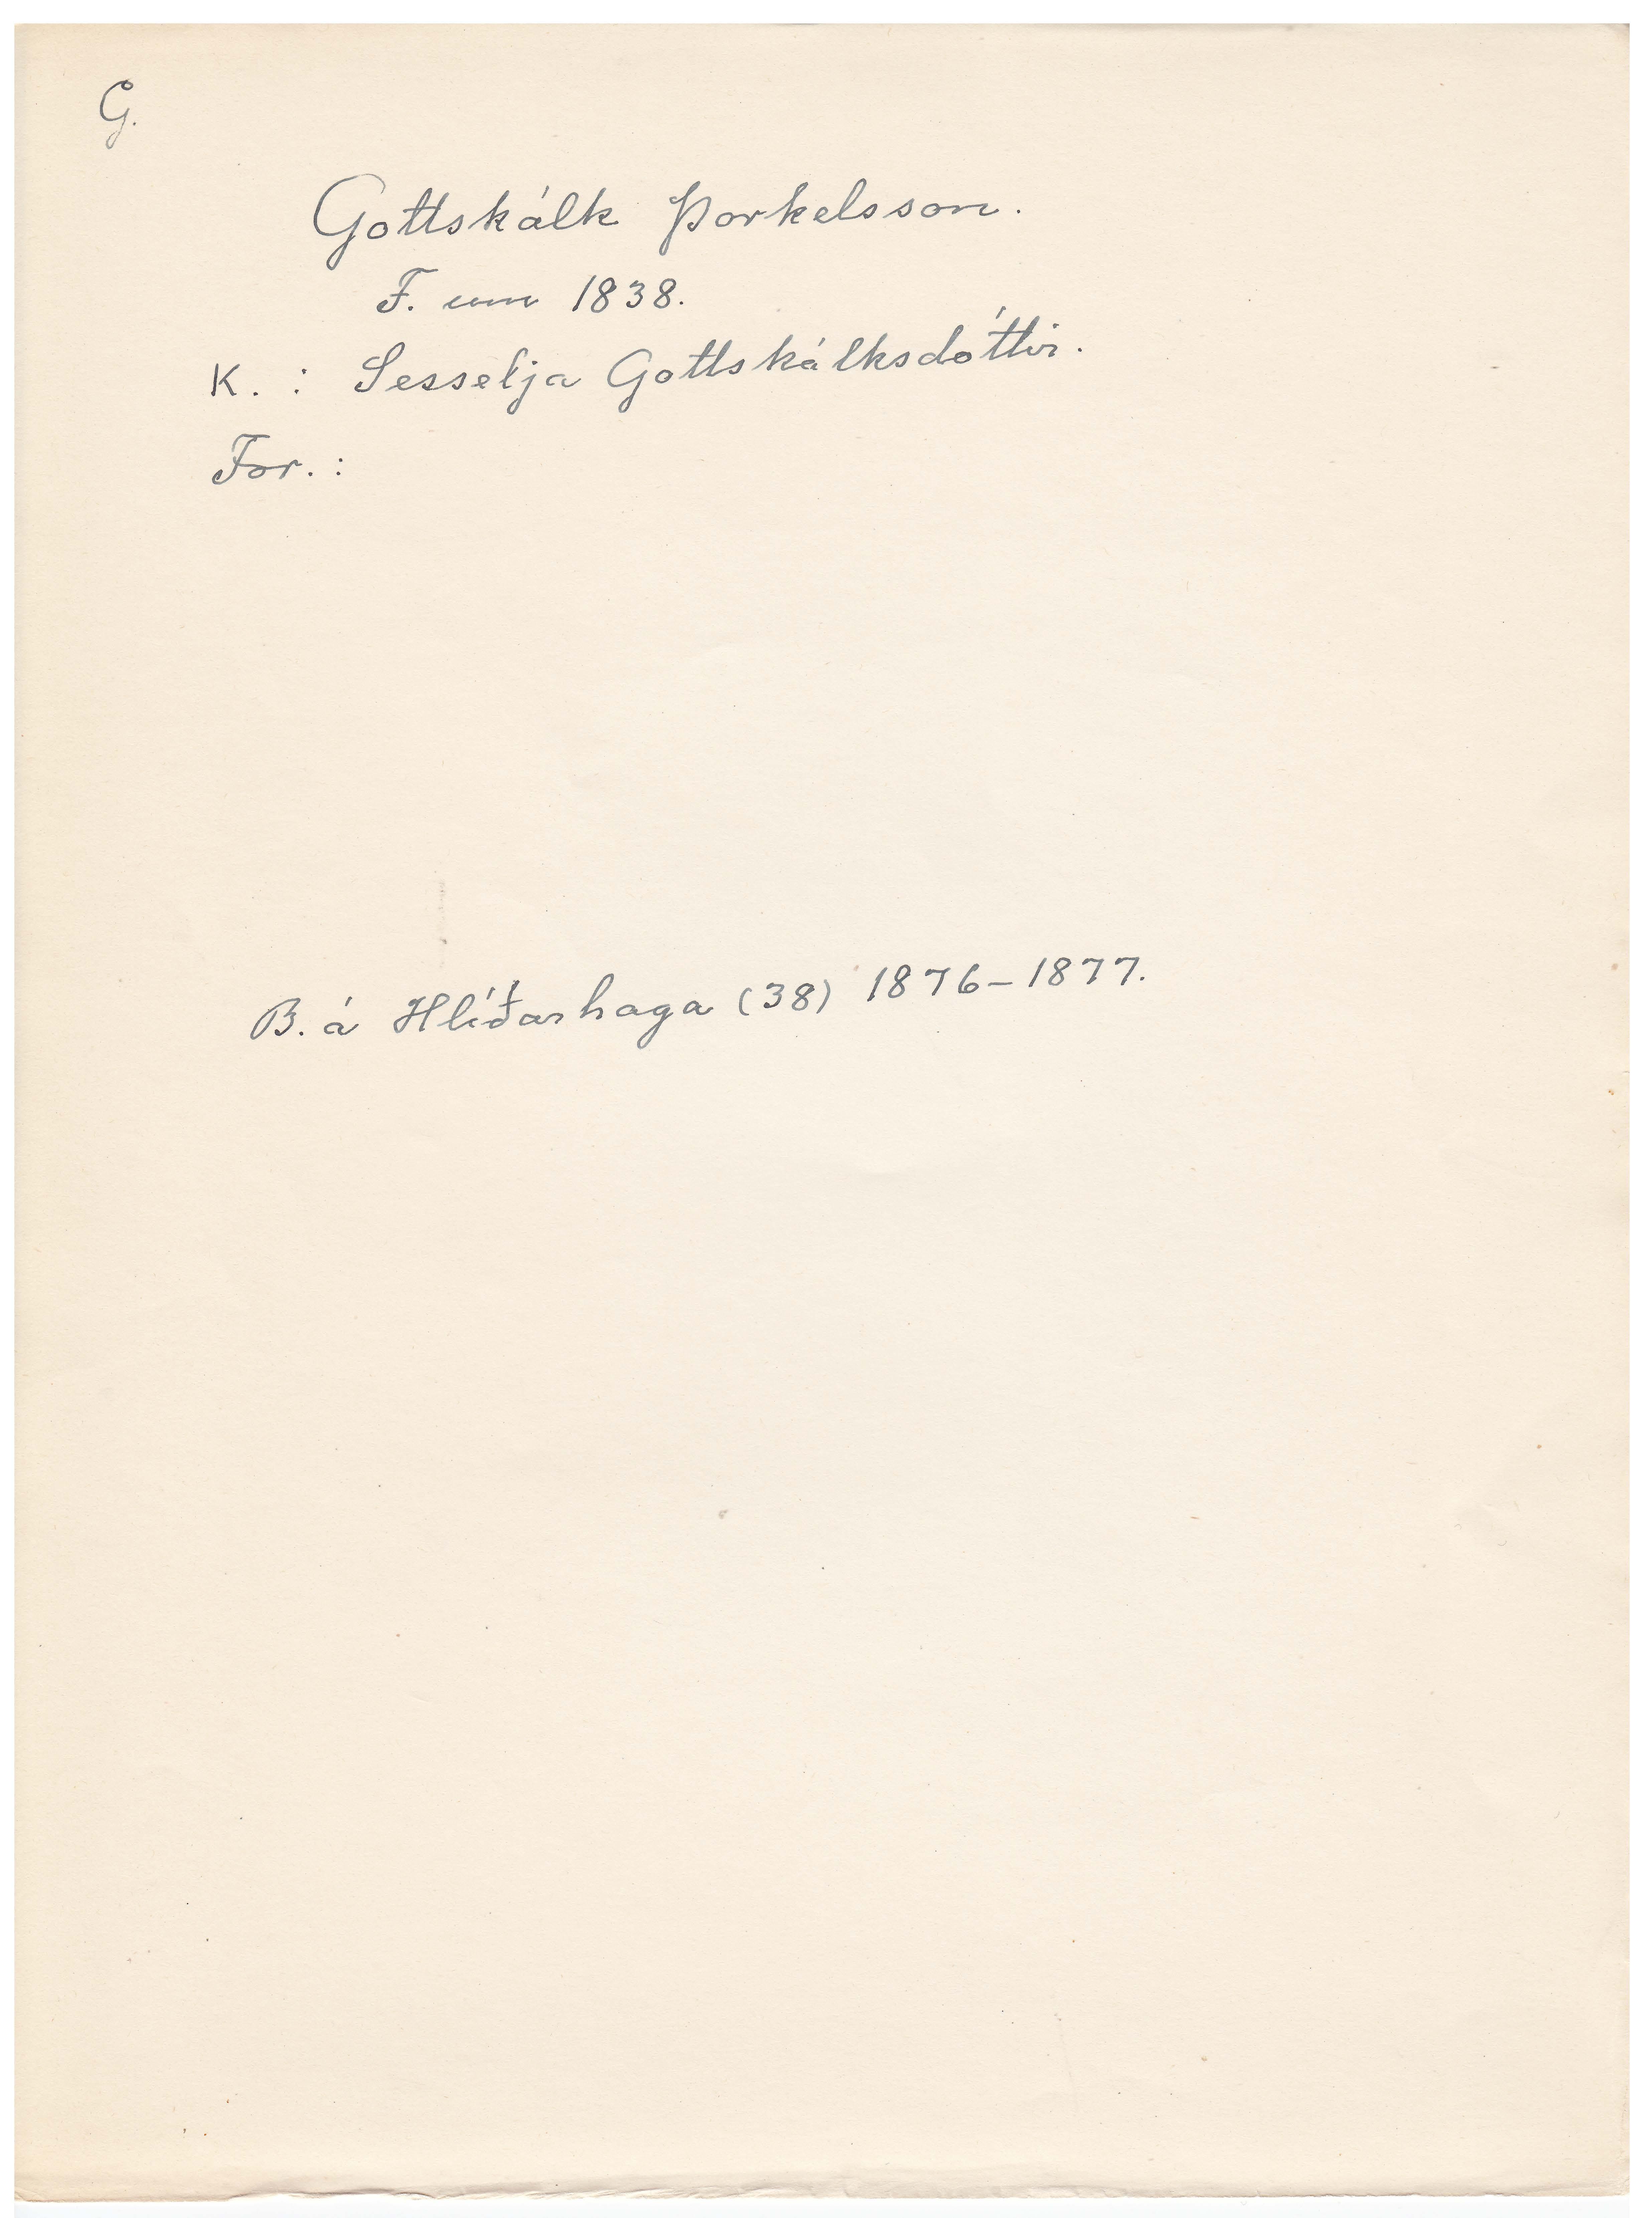 G.
Gottskálk Þorkelsson.
F. um 1838.
K. : Sesselja Gottskálksdóttir.
For. :
B. á Hlíðarhaga (38) 1876-1877.